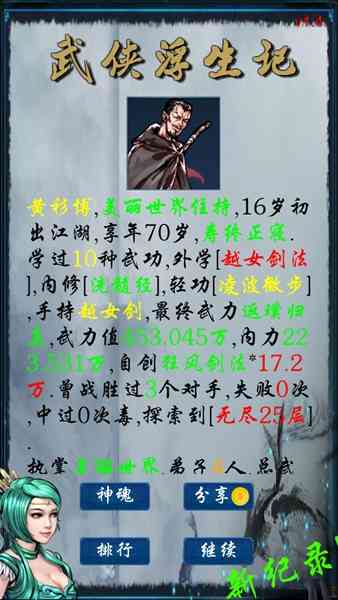 武侠浮生记
黄衫博,美丽世界住持,16岁初
出江湖,享年70岁,寿终正寝.
学过10种武功,外学[越女剑法
],内修[洗髓经],轻功[凌波微步]
,手持越女剑,最终武力返璞归
真,武力值453.045万,内力22
3.531万,自创狂风剑法*17.2
万.曾战胜过3个对手,失败0次
,中过0次毒,探索到[无尽25层]
.
执掌美丽世界.弟子 人.总武
神魂
分享
排行
继续
新纪录